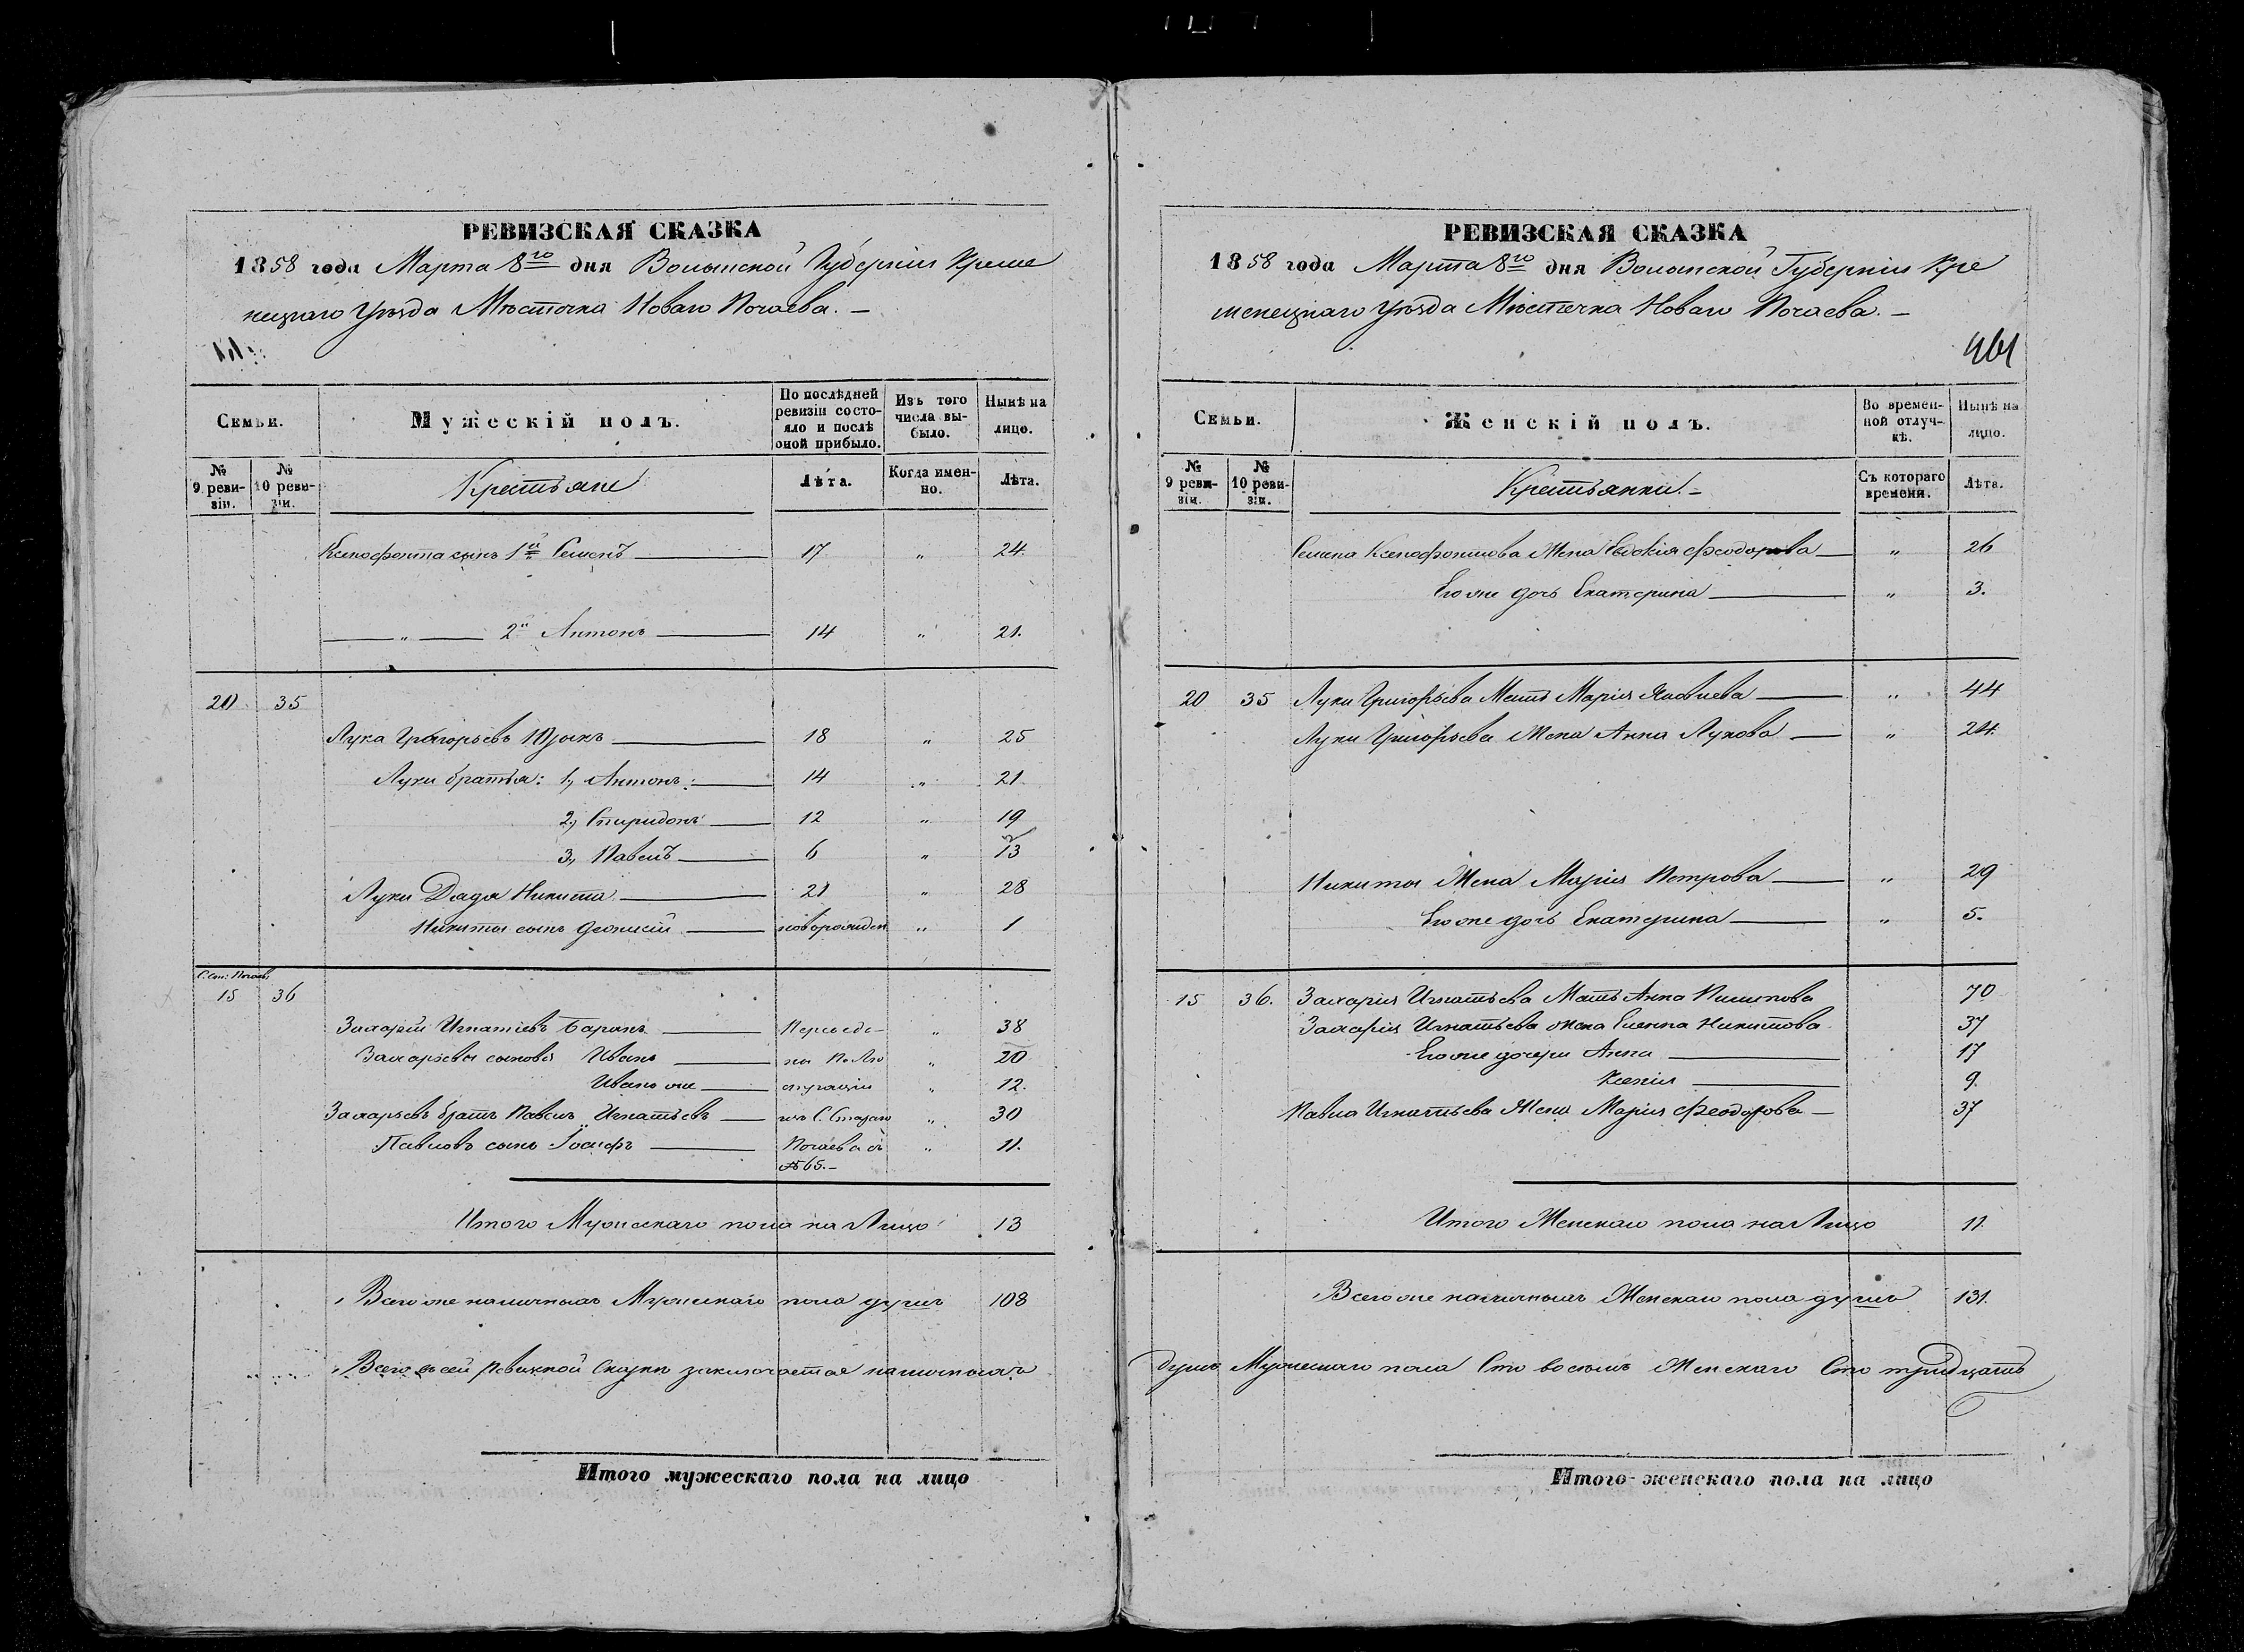 РЕВИЗСКАЯ СКАЗКА
1858 года Марта 8го дня Волынской Губерніи Креме
нецкаго Уѣзда Мѣстечка Новаго Почаева. —
Семьи.
Мужескій полъ.
По послѣдней ревизіи состояло и послѣ оной прибыло.
Изъ того числа выбыло.
Нынѣ на лицо.
№ 9 ревизіи.
№ 10 ревизіи.
Крестьяне
Лѣта.
Когда именно.
Лѣта.
Ксенофонта сынъ 1й Семенъ 17 " 24.
" 2й Антонъ 14 " 21.
20 35
Лука Григорьевъ 18 " 25
Луки братья: 1, Антонъ: 14 " 21
2, Спиридонъ 12 " 19
3, Павелъ 6 " 13
Луки Дядя Никита 21 " 28
Никиты сынъ Діонисій новорожден " 1
С. Ст: Почаев:
15 36
Захарій Игнатіевъ Баранъ Переведе- " 38
Захарьевы сыновья Иванъ 20
Иванъ же " 12.
Захарьевъ братъ Павелъ Игнатьевъ изъ С. Стараго " 30
Павловъ сынъ Іосифъ Почаева съ " 11.
№ 65. —
Итого Мужескаго пола на Лицо 13
Всего же наличныхъ Мужескаго пола душъ 108
Всего въ сей Ревизской Сказкѣ заключается наличныхъ
Итого мужескаго пола на лицо
РЕВИЗСКАЯ СКАЗКА
1858 года Марта 8го дня Волынской Губерніи Кре
менецкаго Уѣзда Мѣстечка Новаго Почаева. —
461
Семьи.
Женскій полъ.
Во временной отлучкѣ.
Нынѣ на лицо.
№ 9 ревизіи.
№ 10 ревизіи.
Крестьянки. —
Съ котораго времени.
Лѣта.
Семена Ксенофонтова Жена Евдокія Феодорова " 26
Его же дочь Екатерина " 3.
20 35 Луки Григорьева Мать Марія " 44
Луки Григорьева Жена Анна Лукова " 24.
Никиты Жена Марія Петрова " 29
Его же дочь Екатерина " 5.
15 36. Захарія Игнатьева Мать Анна 70
Захарія Игнатьева жена Еленна Никитова 37
Его же дочери Анна 17
Ксенія 9.
Павла Игнатьева Жена Марія Феодорова — 37
Итого Женскаго пола на Лицо 11.
Всего же наличныхъ Женскаго пола душъ 131.
душъ Мужескаго пола Сто восемь Женскаго Сто тридцать
Итого женскаго пола на лицо